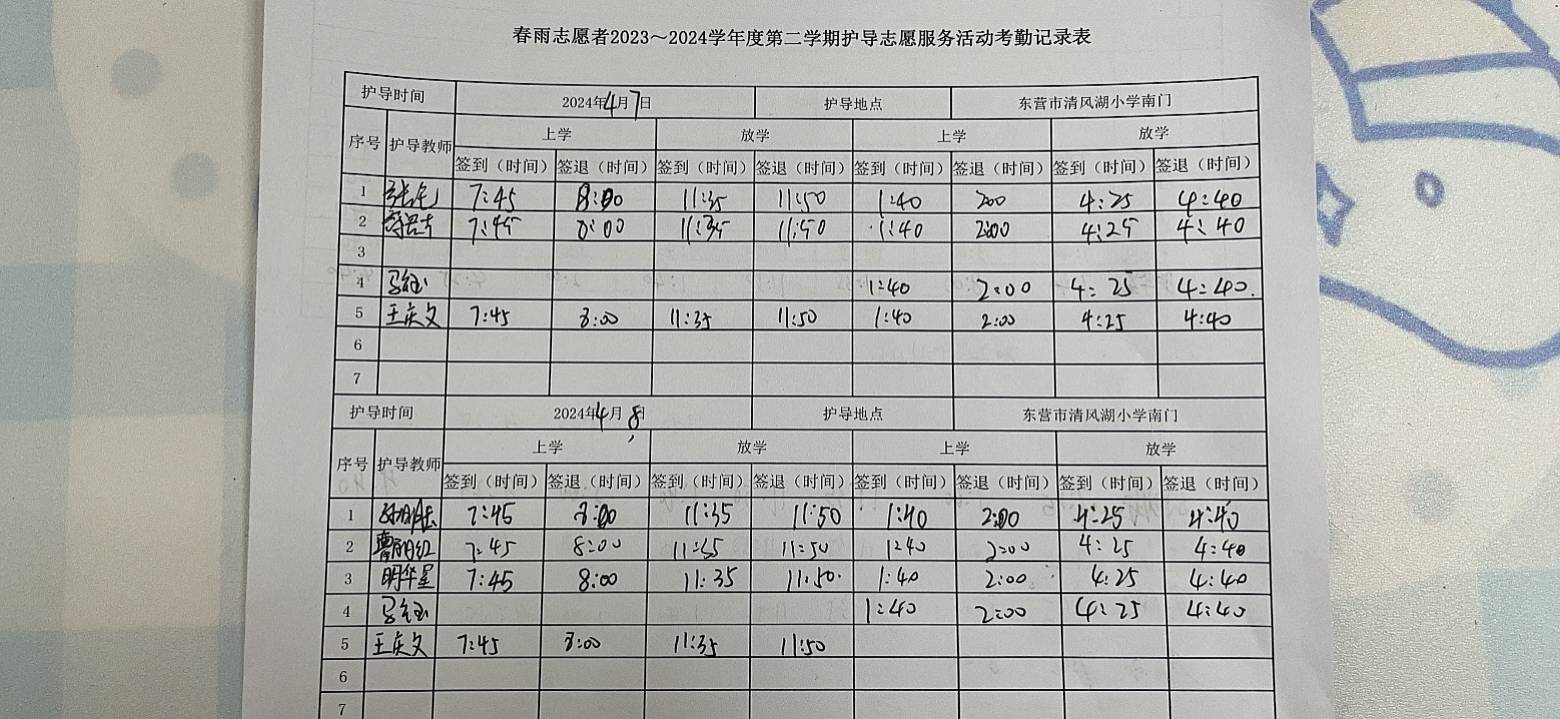 春雨志愿者2023～2024学年度第二学期护导志愿服务活动考勤记录表
护导时间 2024年4月7日 护导地点 东营市清风湖小学南门
序号 护导教师 上学 放学 上学 放学
签到（时间） 签退（时间） 签到（时间） 签退（时间） 签到（时间） 签退（时间） 签到（时间） 签退（时间）
1 7:45 8:00 11:35 11:50 1:40 200 4:25 4:40
2 7:45 8:00 11:35 11:50 1:40 2:00 4:25 4:40
3
4 1:40 2:00 4:25 4:40.
5 王庆文 7:45 8:00 11:35 11:50 1:40 2:00 4:25 4:40
6
7
护导时间 2024年4月8日 护导地点 东营市清风湖小学南门
序号 护导教师 上学 放学 上学 放学
签到（时间） 签退（时间） 签到（时间） 签退（时间） 签到（时间） 签退（时间） 签到（时间） 签退（时间）
1 7:45 8:00 11:35 11:50 1:40 2:00 4:25 4:40
2 曹丽红 7:45 8:00 11:35 11:50 1:40 2:00 4:25 4:40
3 明华星 7:45 8:00 11:35 11:50. 1:40 2:00 4:25 4:40
4 1:40 2:00 4:25 4:40
5 王庆文 7:45 8:00 11:35 11:50
6
7